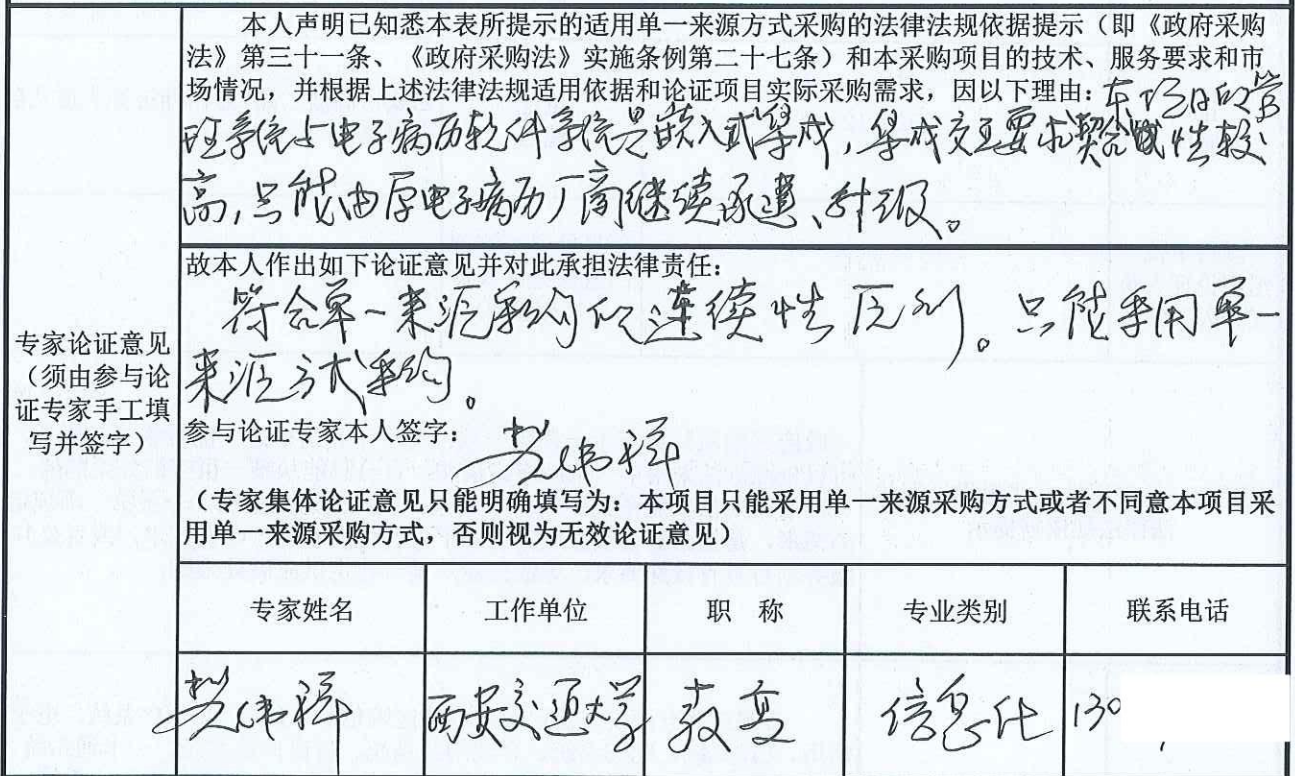 本人声明已知悉本表所提示的适用单一来源方式采购的法律法规依据提示（即《政府采购
法》第三十一条、《政府采购法》实施条例第二十七条）和本采购项目的技术、服务要求和市
场情况，并根据上述法律法规适用依据和论证项目实际采购需求，因以下理由：本项目的
系统与电子病历软件系统是嵌入式集成，集成交互要求契合性较
高，只能由原电子病历厂商继续承建、升级。
故本人作出如下论证意见并对此承担法律责任：
符合单一来源采购的连续性原则。只能采用单一
来源方式采购。
专家论证意见
（须由参与论
证专家手工填
写并签字）
参与论证专家本人签字：
（专家集体论证意见只能明确填写为：本项目只能采用单一来源采购方式或者不同意本项目采
用单一来源采购方式，否则视为无效论证意见）
专家姓名 工作单位 职 称 专业类别 联系电话
西安交通大学 信息化 130